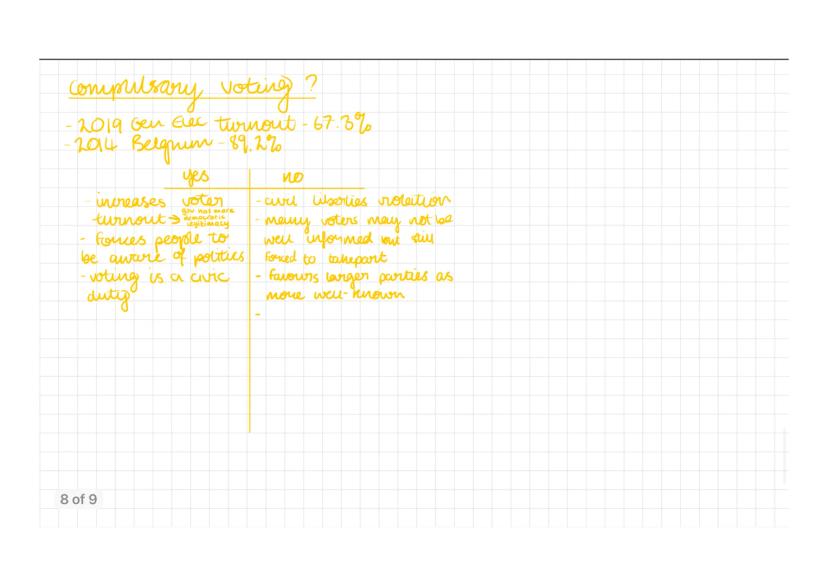 compulsary voting?
- 2019 Gen Elec turnout - 67.3%
- 2014 Belgium - 89.2%
yes
no
- increases voter
turnout → gov has more
democratic
legitimacy
- forces people to
be aware of politics
- voting is a civic
duty
- civil liberties violation
- many voters may not be
well informed but still
forced to takepart
- favours larger parties as
more well-known
-
8 of 9